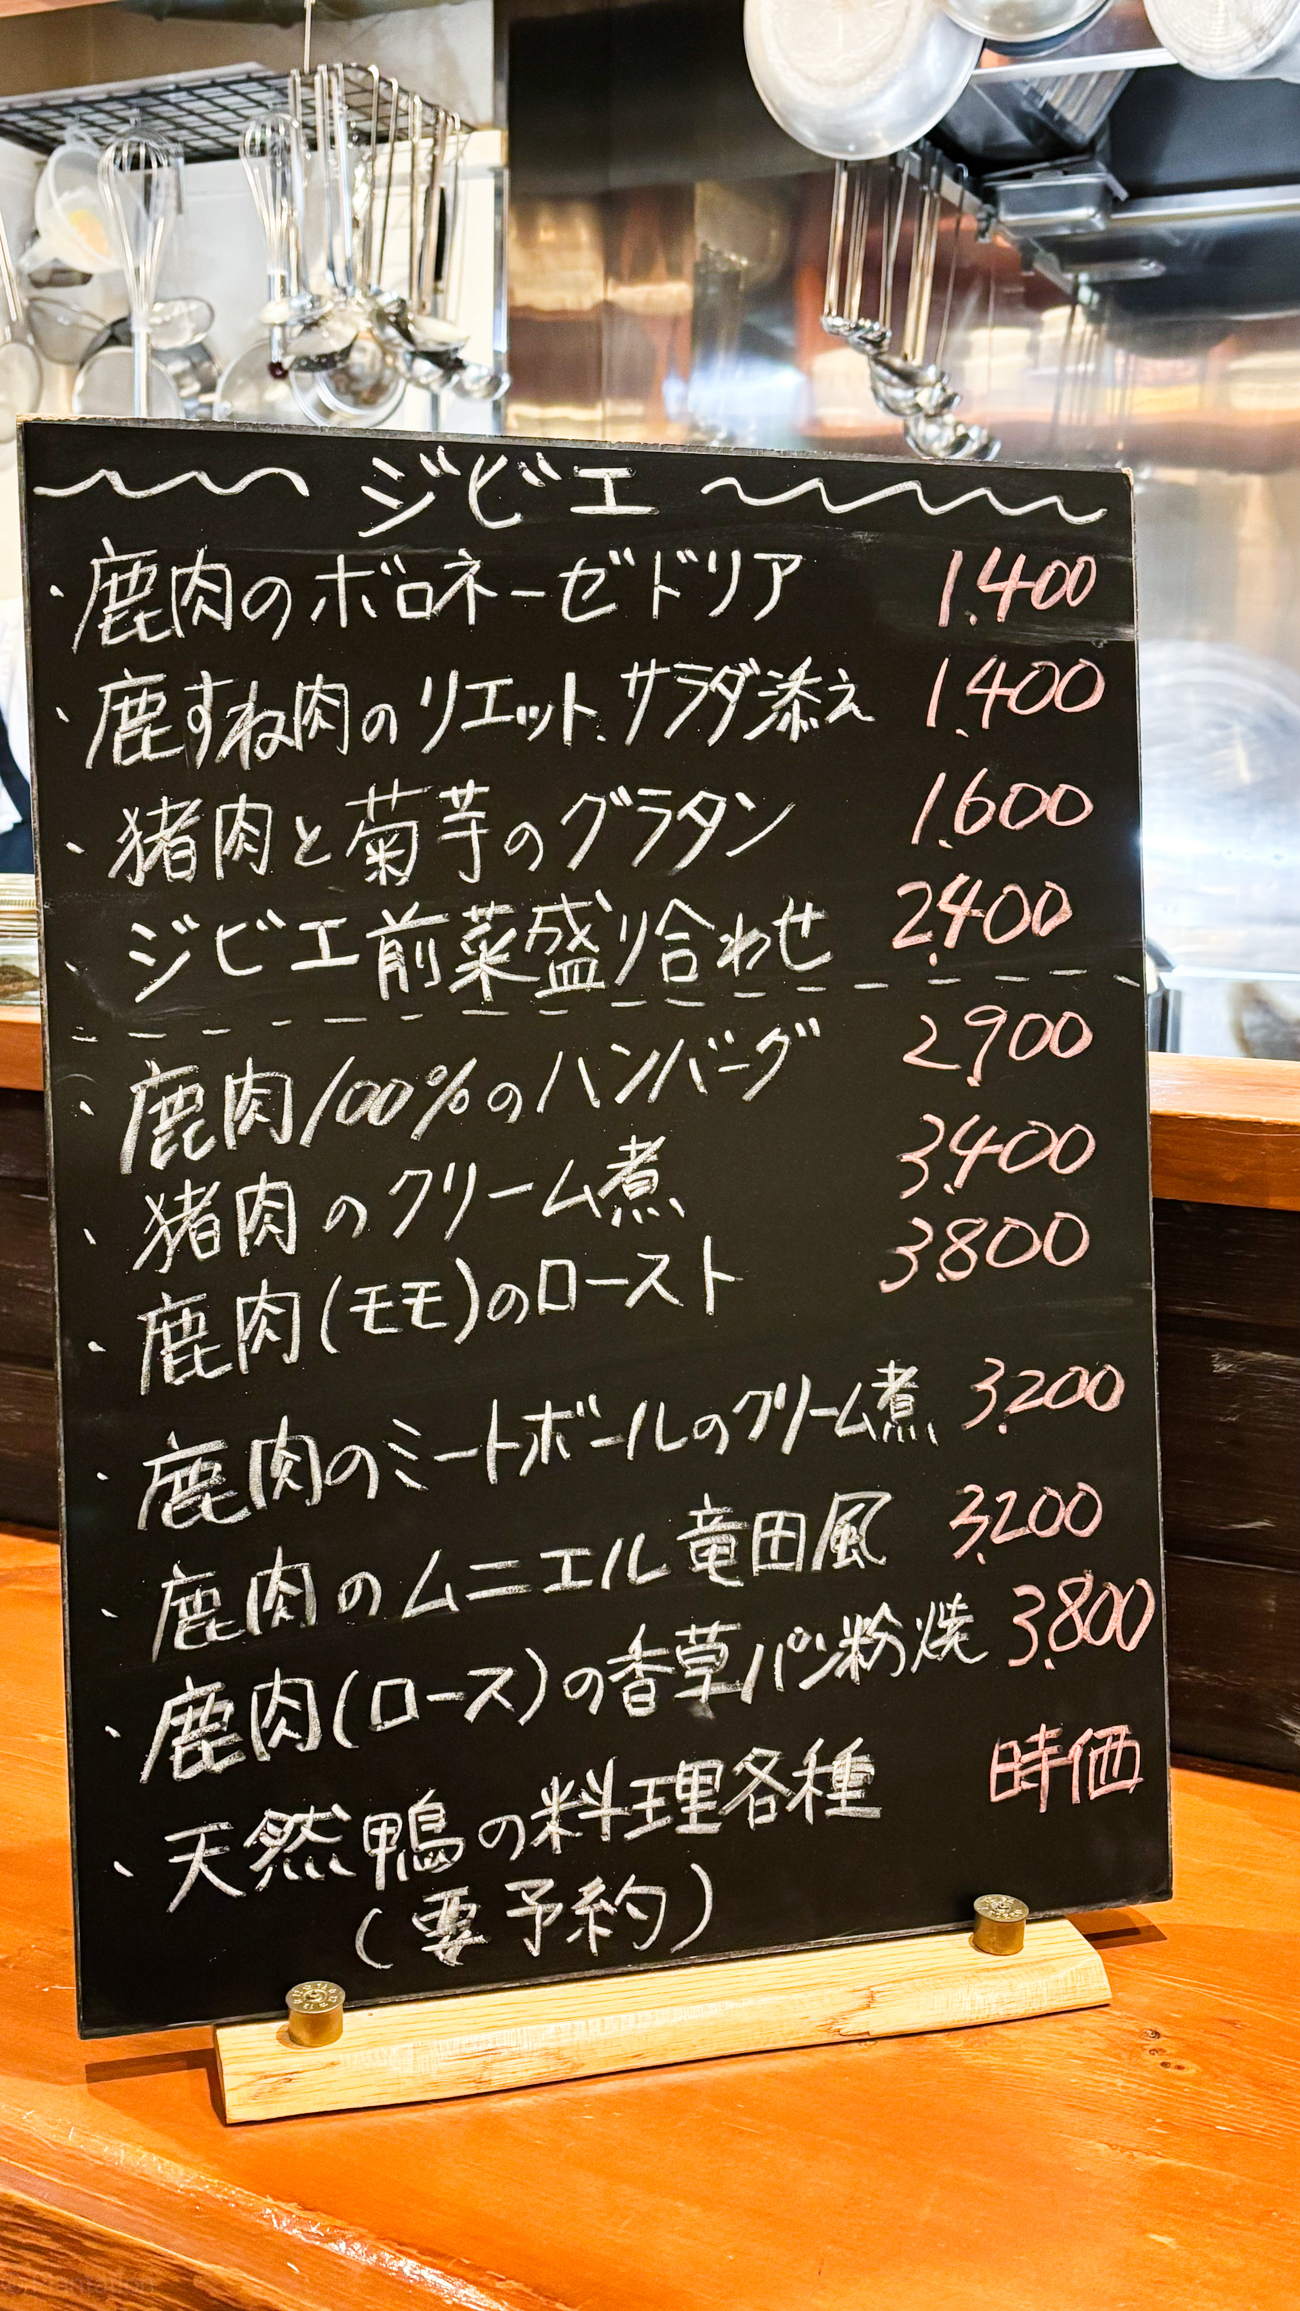 ジビエ
・鹿肉のボロネーゼドリア 1,400
・鹿すね肉のリエット、サラダ添え 1,400
・猪肉と菊芋のグラタン 1,600
・ジビエ前菜盛り合わせ 2,400
・鹿肉100%のハンバーグ 2,900
・猪肉のクリーム煮 3,400
・鹿肉(モモ)のロースト 3,800
・鹿肉のミートボールのクリーム煮 3,200
・鹿肉のムニエル竜田風 3,200
・鹿肉(ロース)の香草パン粉焼 3,800
・天然鴨の料理各種 時価
(要予約)